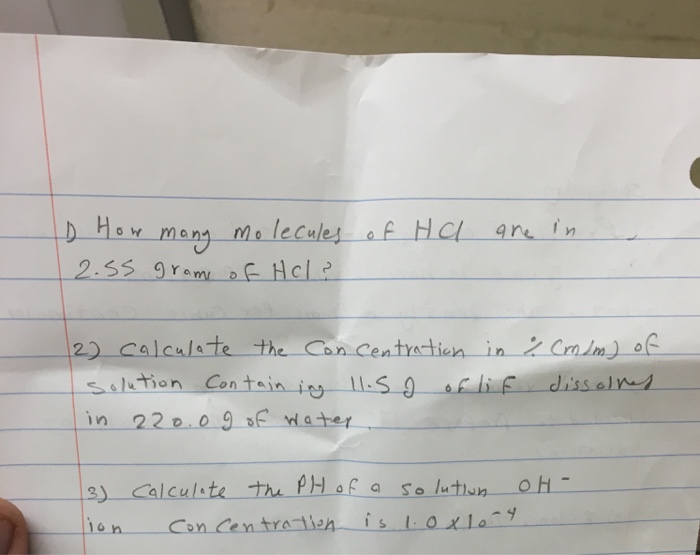 1) How many molecules of HCl are in
2.55 gram of HCl?
2) Calculate the Concentration in % (m/m) of
Solution Containing 11.5 g of liF dissolved
in 220.0 g of water.
3) Calculate the PH of a solution OH-
ion Concentration is 1.0 x 10^-4